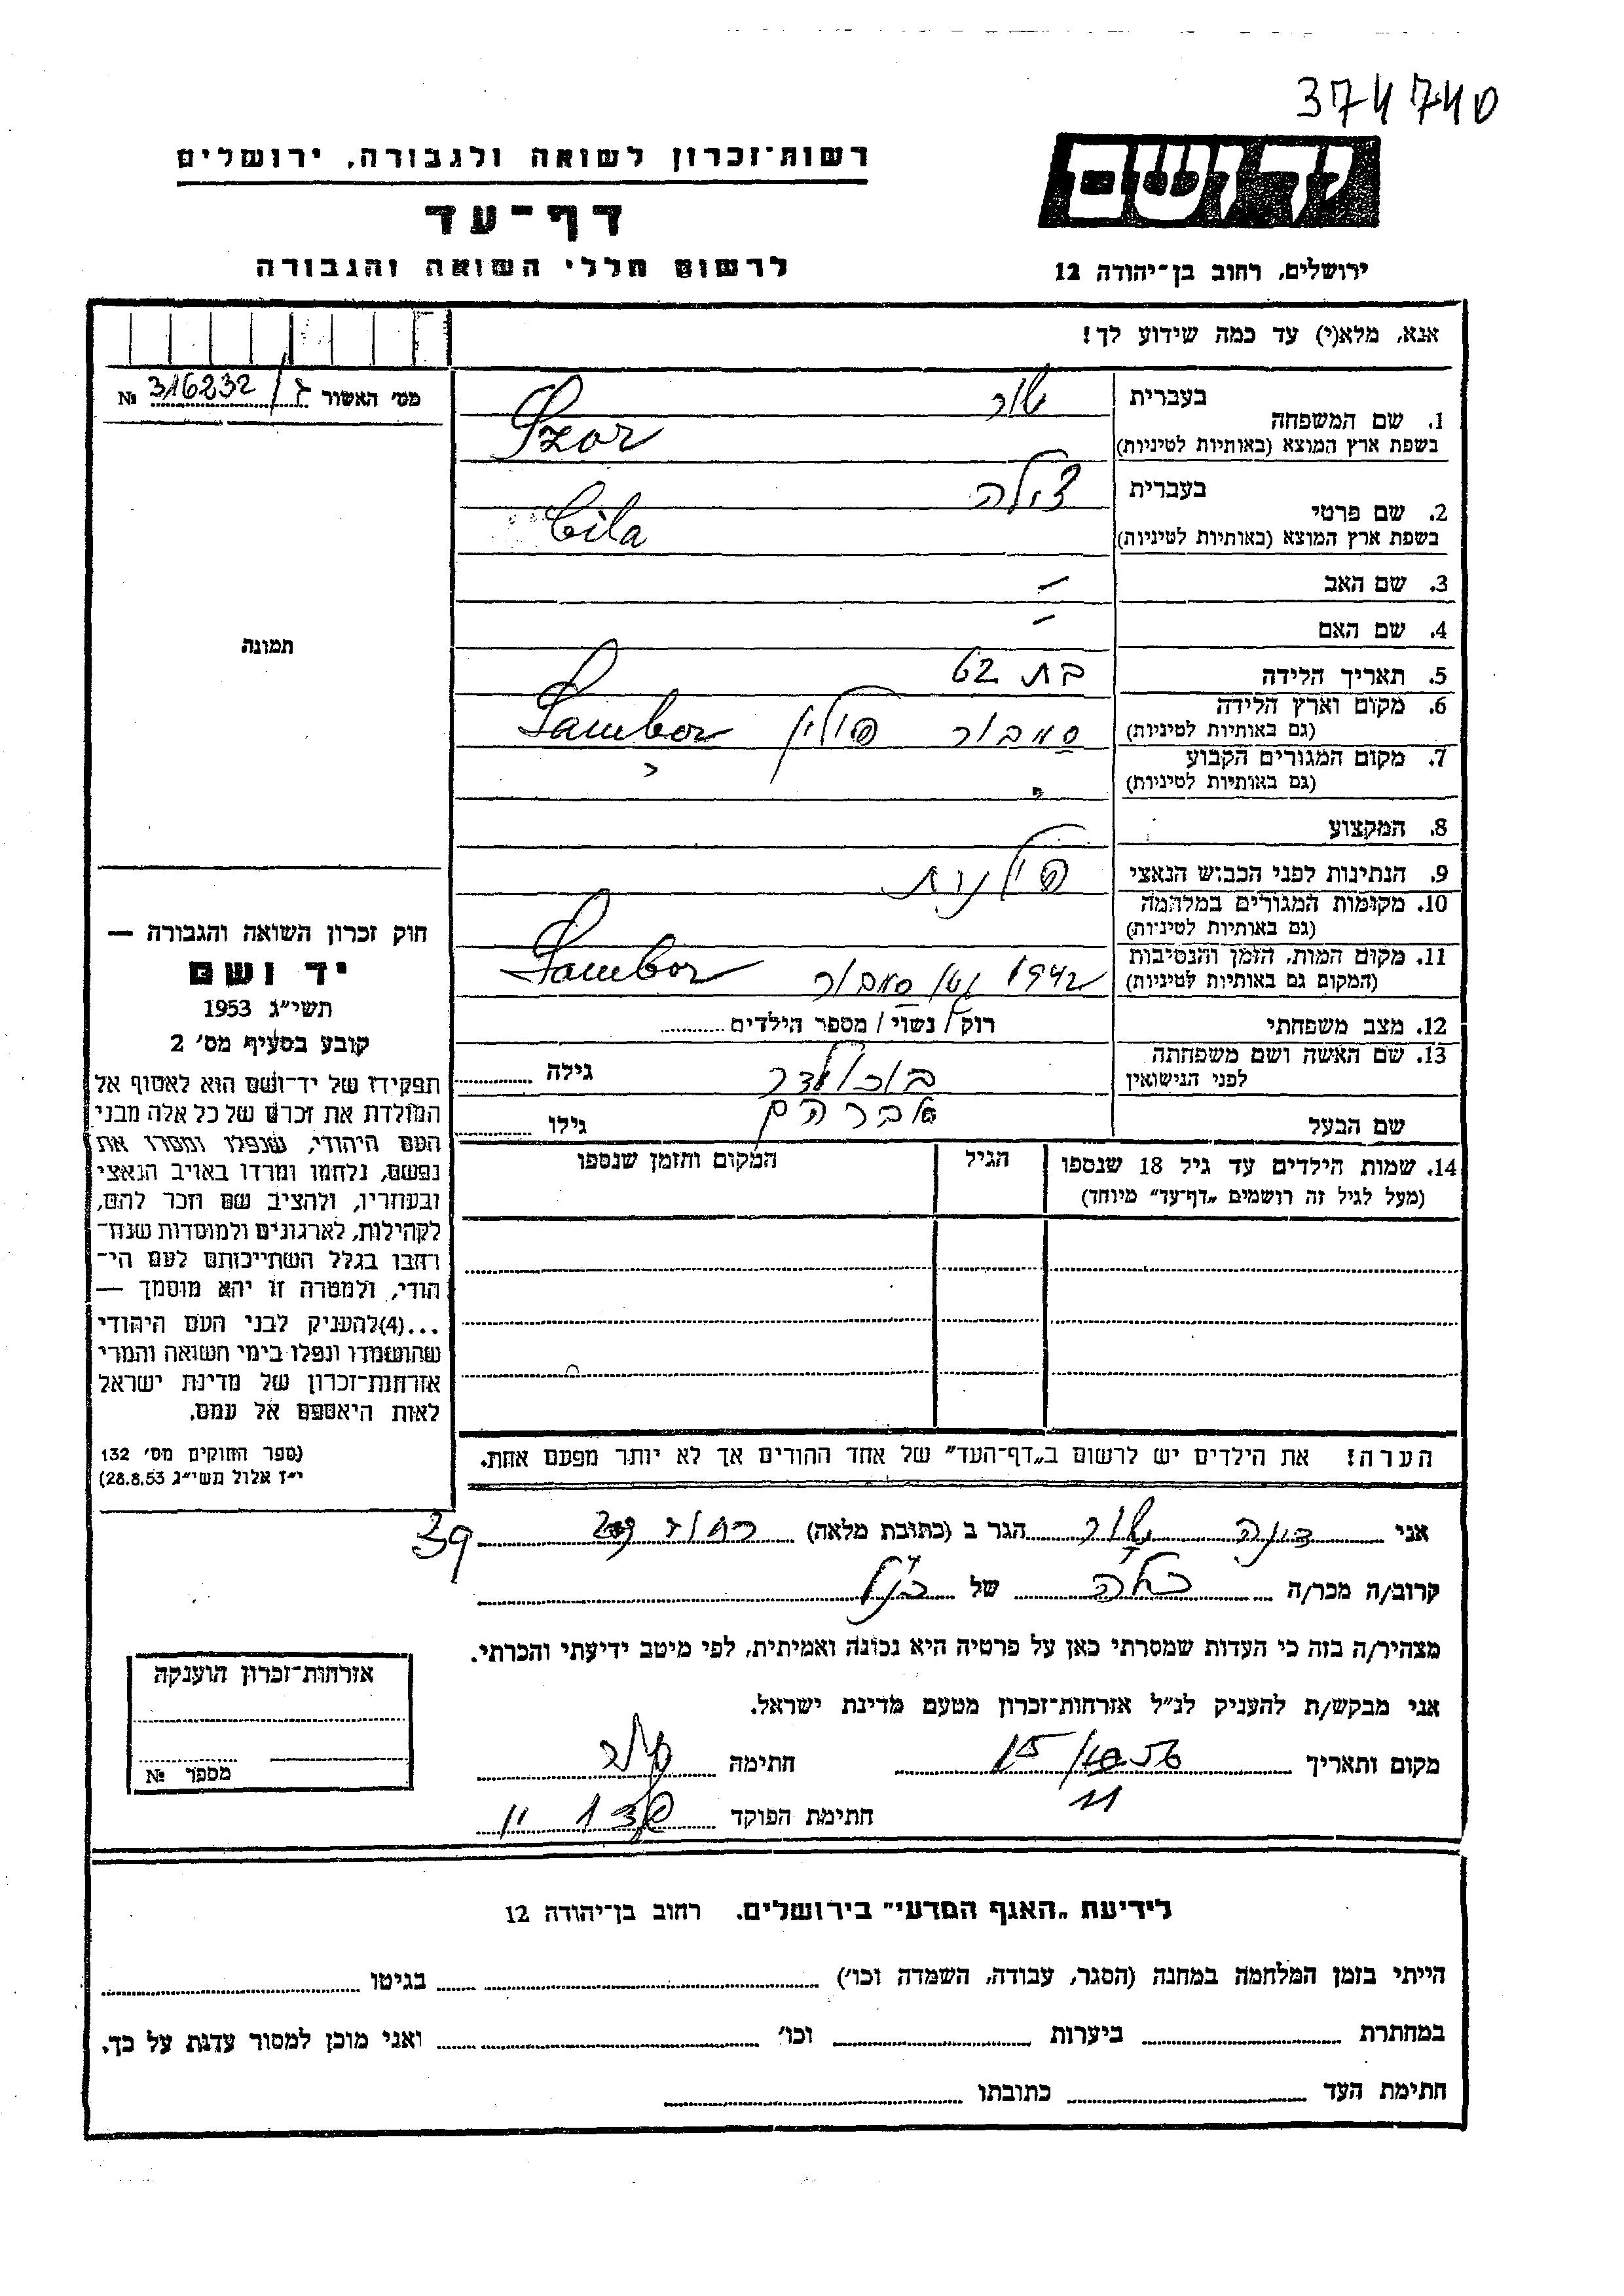 374740
יד ושם
רשות־זכרון לשואה ולגבורה, ירושלים
דף־עד
לרשום חללי השואה והגבורה
ירושלים, רחוב בן־יהודה 12
אנא, מלא(י) עד כמה שידוע לך!
מס׳ האשור № 316232/ג
תמונה
1. שם המשפחה
בעברית שור
בשפת ארץ המוצא (באותיות לטיניות) Szor
2. שם פרטי
בעברית צילה
בשפת ארץ המוצא (באותיות לטיניות) Cila
3. שם האב –
4. שם האם –
5. תאריך הלידה בת 62
6. מקום וארץ הלידה
(גם באותיות לטיניות) סמבור פולין Sambor
7. מקום המגורים הקבוע
(גם באותיות לטיניות)
8. המקצוע
9. הנתינות לפני הכבוש הנאצי פולנית
10. מקומות המגורים במלחמה
(גם באותיות לטיניות)
11. מקום המות, הזמן והנסיבות
(המקום גם באותיות לטיניות) 1942 גטו סמבור Sambor
12. מצב משפחתי רוק / נשוי / מספר הילדים
13. שם האשה ושם משפחתה
לפני הנישואין גילה
שם הבעל אברהם גילו
14. שמות הילדים עד גיל 18 שנספו
(מעל לגיל זה רושמים „דף־עד״ מיוחד)
הגיל
המקום והזמן שנספו
הערה! את הילדים יש לרשום ב„דף־העד״ של אחד ההורים אך לא יותר מפעם אחת.
חוק זכרון השואה והגבורה —
יד ושם
תשי״ג 1953
קובע בסעיף מס׳ 2
תפקידו של יד־ושם הוא לאסוף אל
המולדת את זכרם של כל אלה מבני
העם היהודי, שנפלו ומסרו את
נפשם, נלחמו ומרדו באויב הנאצי
ובעוזריו, ולהציב שם וזכר להם,
לקהילות, לארגונים ולמוסדות שנח־
רבו בגלל השתייכותם לעם הי־
הודי, ולמטרה זו יהא מוסמך —
...(4)להעניק לבני העם היהודי
שהושמדו ונפלו בימי השואה והמרי
אזרחות־זכרון של מדינת ישראל
לאות היאספם אל עמם.
(ספר החוקים מס׳ 132
י״ז אלול תשי״ג 28.8.53)
אני שור הגר ב (כתובת מלאה) 39
קרוב/ה מכר/ה כלה של הנ״ל
מצהיר/ה בזה כי העדות שמסרתי כאן על פרטיה היא נכונה ואמיתית, לפי מיטב ידיעתי והכרתי.
אני מבקש/ת להעניק לנ״ל אזרחות־זכרון מטעם מדינת ישראל.
מקום ותאריך 15/11 56 חתימה שור
חתימת הפוקד
אזרחות־זכרון הוענקה
מספר №
לידיעת „האגף המדעי״ בירושלים. רחוב בן־יהודה 12
הייתי בזמן המלחמה במחנה (הסגר, עבודה, השמדה וכו׳) בגיטו
במחתרת ביערות וכו׳ ואני מוכן למסור עדות על כך.
חתימת העד כתובתו